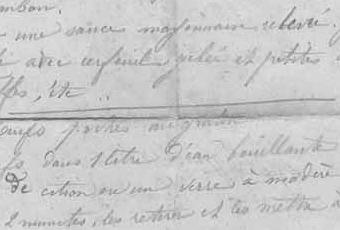 mbon.
une sauce mayonnaise relevé.
avec cerfeuil, gelée et petites
etc ..
oeufs pochés au gratin
dans 1 litre d'eau bouillante
de citron ou un verre à madère
2 minutes, les retirer et les mettre à